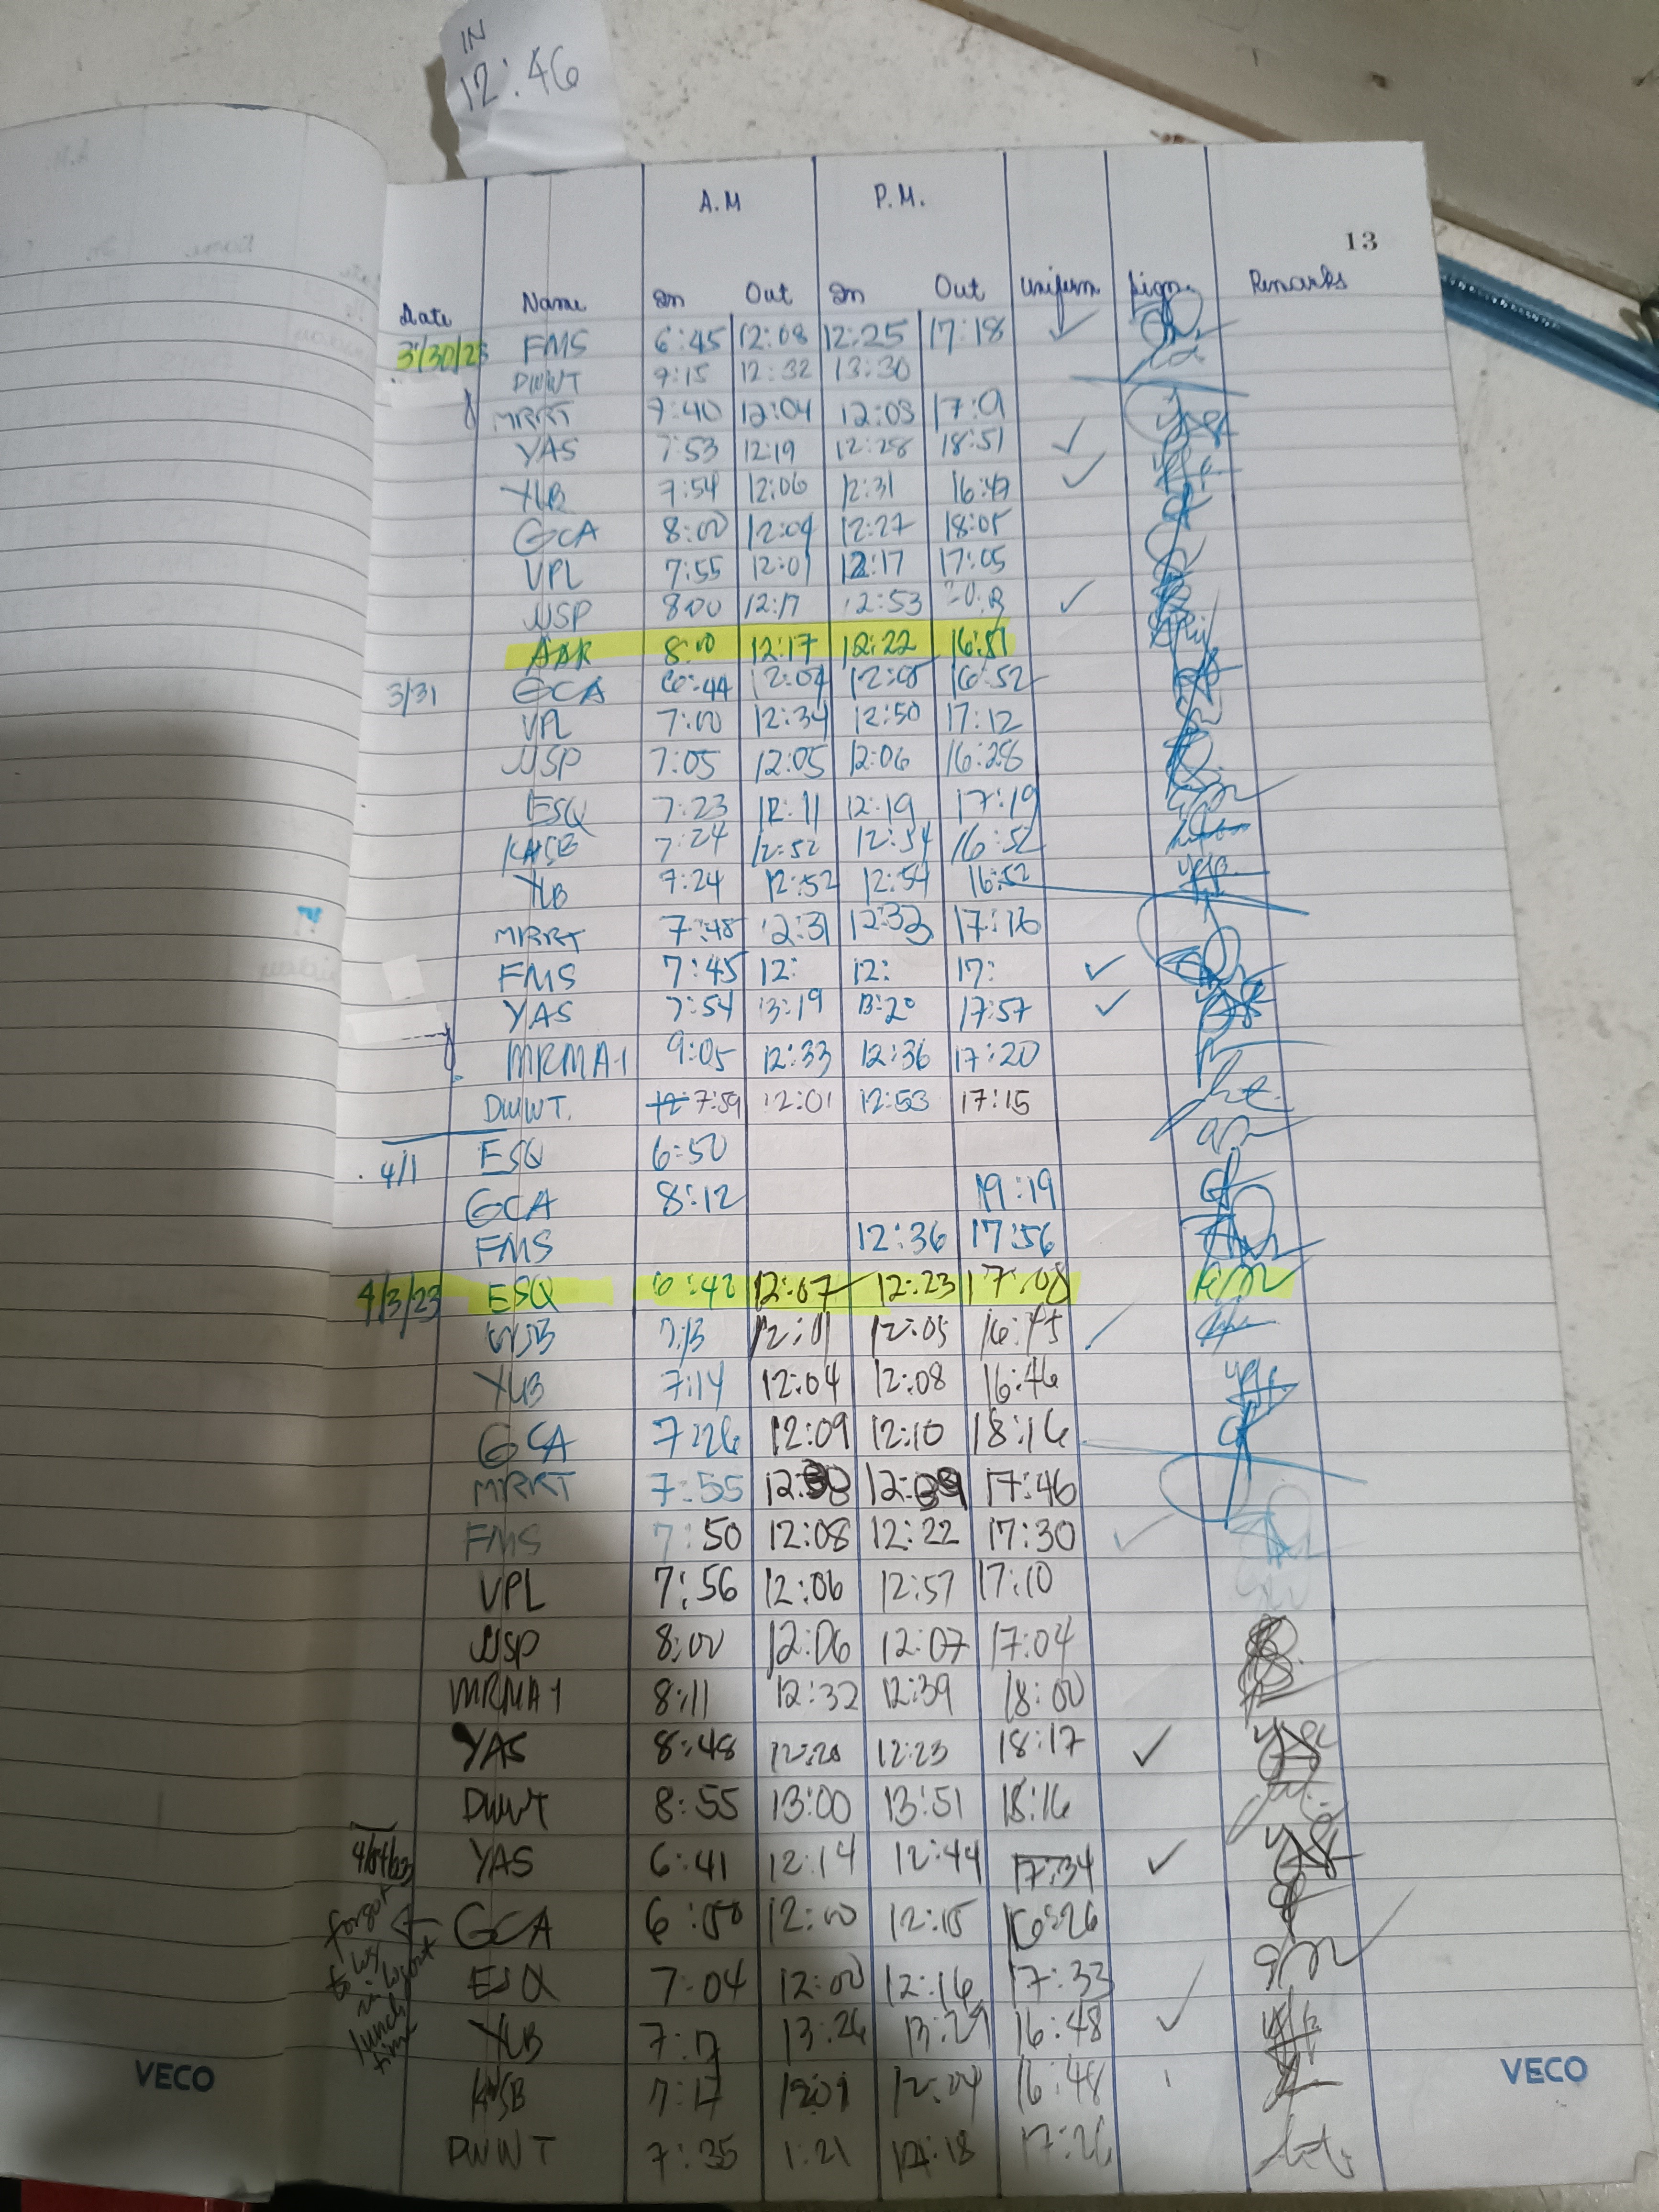 IN
12:46
A.M P.M.
13
Date Name In Out In Out Uniform Sign Remarks
3/30/23 FMS 6:45 12:08 12:25 17:18 ✓
DWWT 9:15 12:32 13:30
MRRT 7:40 12:04 12:03
YAS 7:53 12:19 12:28 18:51 ✓
YLB 7:54 12:06 12:31 16:47 ✓
GCA 8:00 12:09 12:27 18:05
VPL 7:55 12:01 12:17 17:05
JJSP 8:00 12:17 12:53 ✓
AAR 8:00 12:17 12:22 16:51
3/31 GCA 6:44 12:04 16:52
VPL 7:00 12:34 12:50 17:12
JJSP 7:05 12:05 12:06 16:28
ESQ 7:23 12:11 12:19 17:19
7:24 12:52 12:54 16:52
YLB 7:24 12:52 12:54 16:52
MRRT 7:48 12:31 12:33 17:16
FMS 7:45 12: 12: 17: ✓
YAS 7:54 13:19 13:20 17:57 ✓
MRMA-1 9:05 12:33 12:36 17:20
DWWT. 7:59 12:01 12:53 17:15
4/1 ESQ 6:50
GCA 8:12 19:19
FMS 12:36 17:56
4/3/23 ESQ 6:42 12:07 12:23 17:08
7:13 12:01 12:05 16:45
YLB 7:14 12:04 12:08 16:46
GCA 7:26 12:09 12:10 18:16
MRRT 7:55 17:46
FMS 7:50 12:08 12:22 17:30 ✓
VPL 7:56 12:06 12:57 17:10
JJSP 8:00 12:06 12:07 17:04
MRMA-1 8:11 12:32 12:39 18:00
YAS 8:48 12:20 12:23 18:17 ✓
DWWT 8:55 13:00 13:51 18:16
4/04/23 YAS 6:41 12:14 12:44 17:34 ✓
GCA 12:00 12:15 16:26
ESQ 7:04 12:00 12:16 17:33
YLB 7:17 13:26 13:29 16:48 ✓
7:17 12:01 12:04 16:48
DWWT 7:35 1:21 17:26
forgot
to log
in logout
lunch
time
VECO
VECO